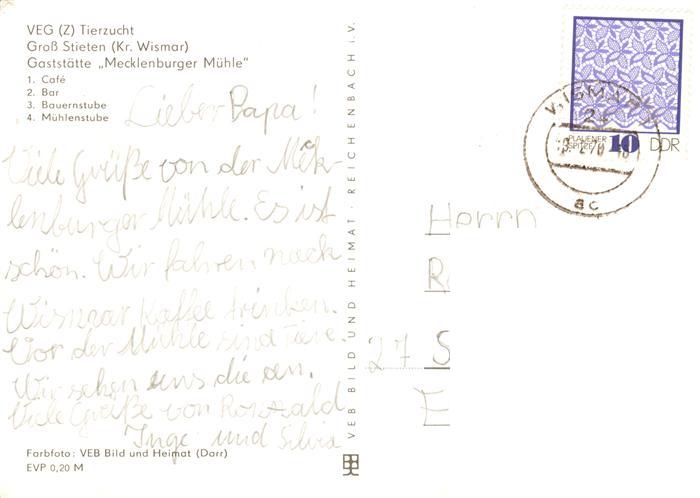 VEG (Z) Tierzucht
Groß Stieten (Kr. Wismar)
Gaststätte „Mecklenburger Mühle“
1. Café
2. Bar
3. Bauernstube
4. Mühlenstube
Lieber Papa!
Viele Grüße von der Mek-
lenburger Mühle. Es ist
schön. Wir fahren nach
Wismar Kaffee trinken.
Vor der Mühle sind Tiere.
Wir sehen uns die an.
Viele Grüße von
Inge und Silvia
Farbfoto: VEB Bild und Heimat (Darr)
EVP 0,20 M
VEB BILD UND HEIMAT · REICHENBACH i. V.
PLAUENER
SPITZE 10 DDR
WISMAR
24
ac
Herrn
R
27 S
E